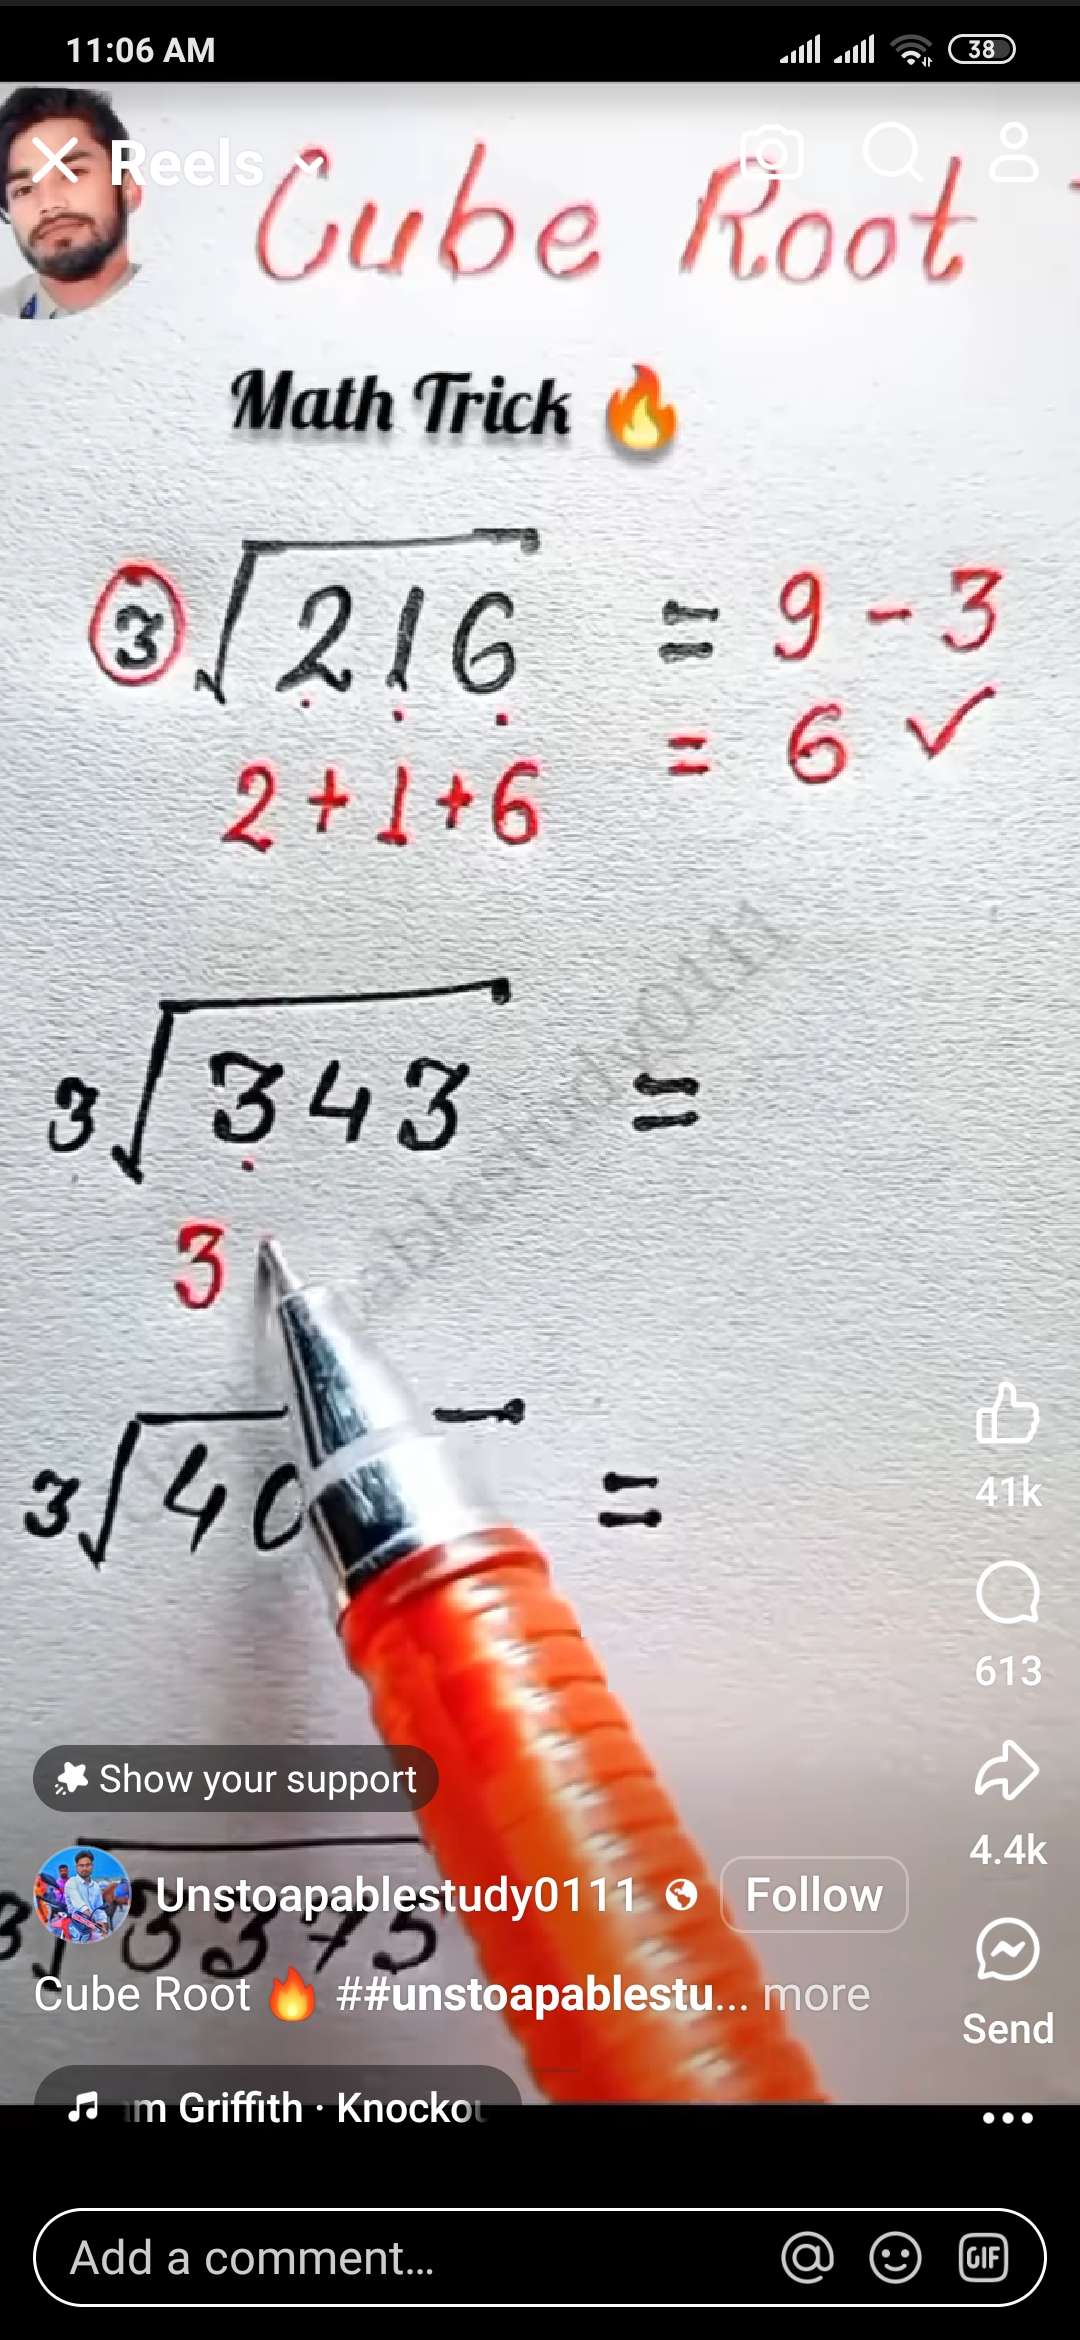 11:06 AM
38
Reels
Cube Root
Math Trick 🔥
3√216 = 9 - 3
= 6 ✓
2 + 1 + 6
3√343 =
3
3√40 =
41k
613
Show your support
4.4k
Unstoapablestudy0111
Follow
3√3375
Cube Root 🔥 ##unstoapablestu... more
Send
m Griffith · Knockou
Add a comment...
GIF